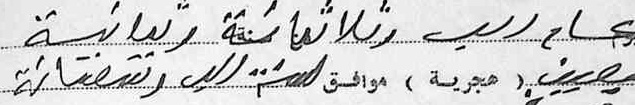 عام الف وثلاثمائة وثمانية
( هجرية ) موافق لسنة الف وتسعمائة